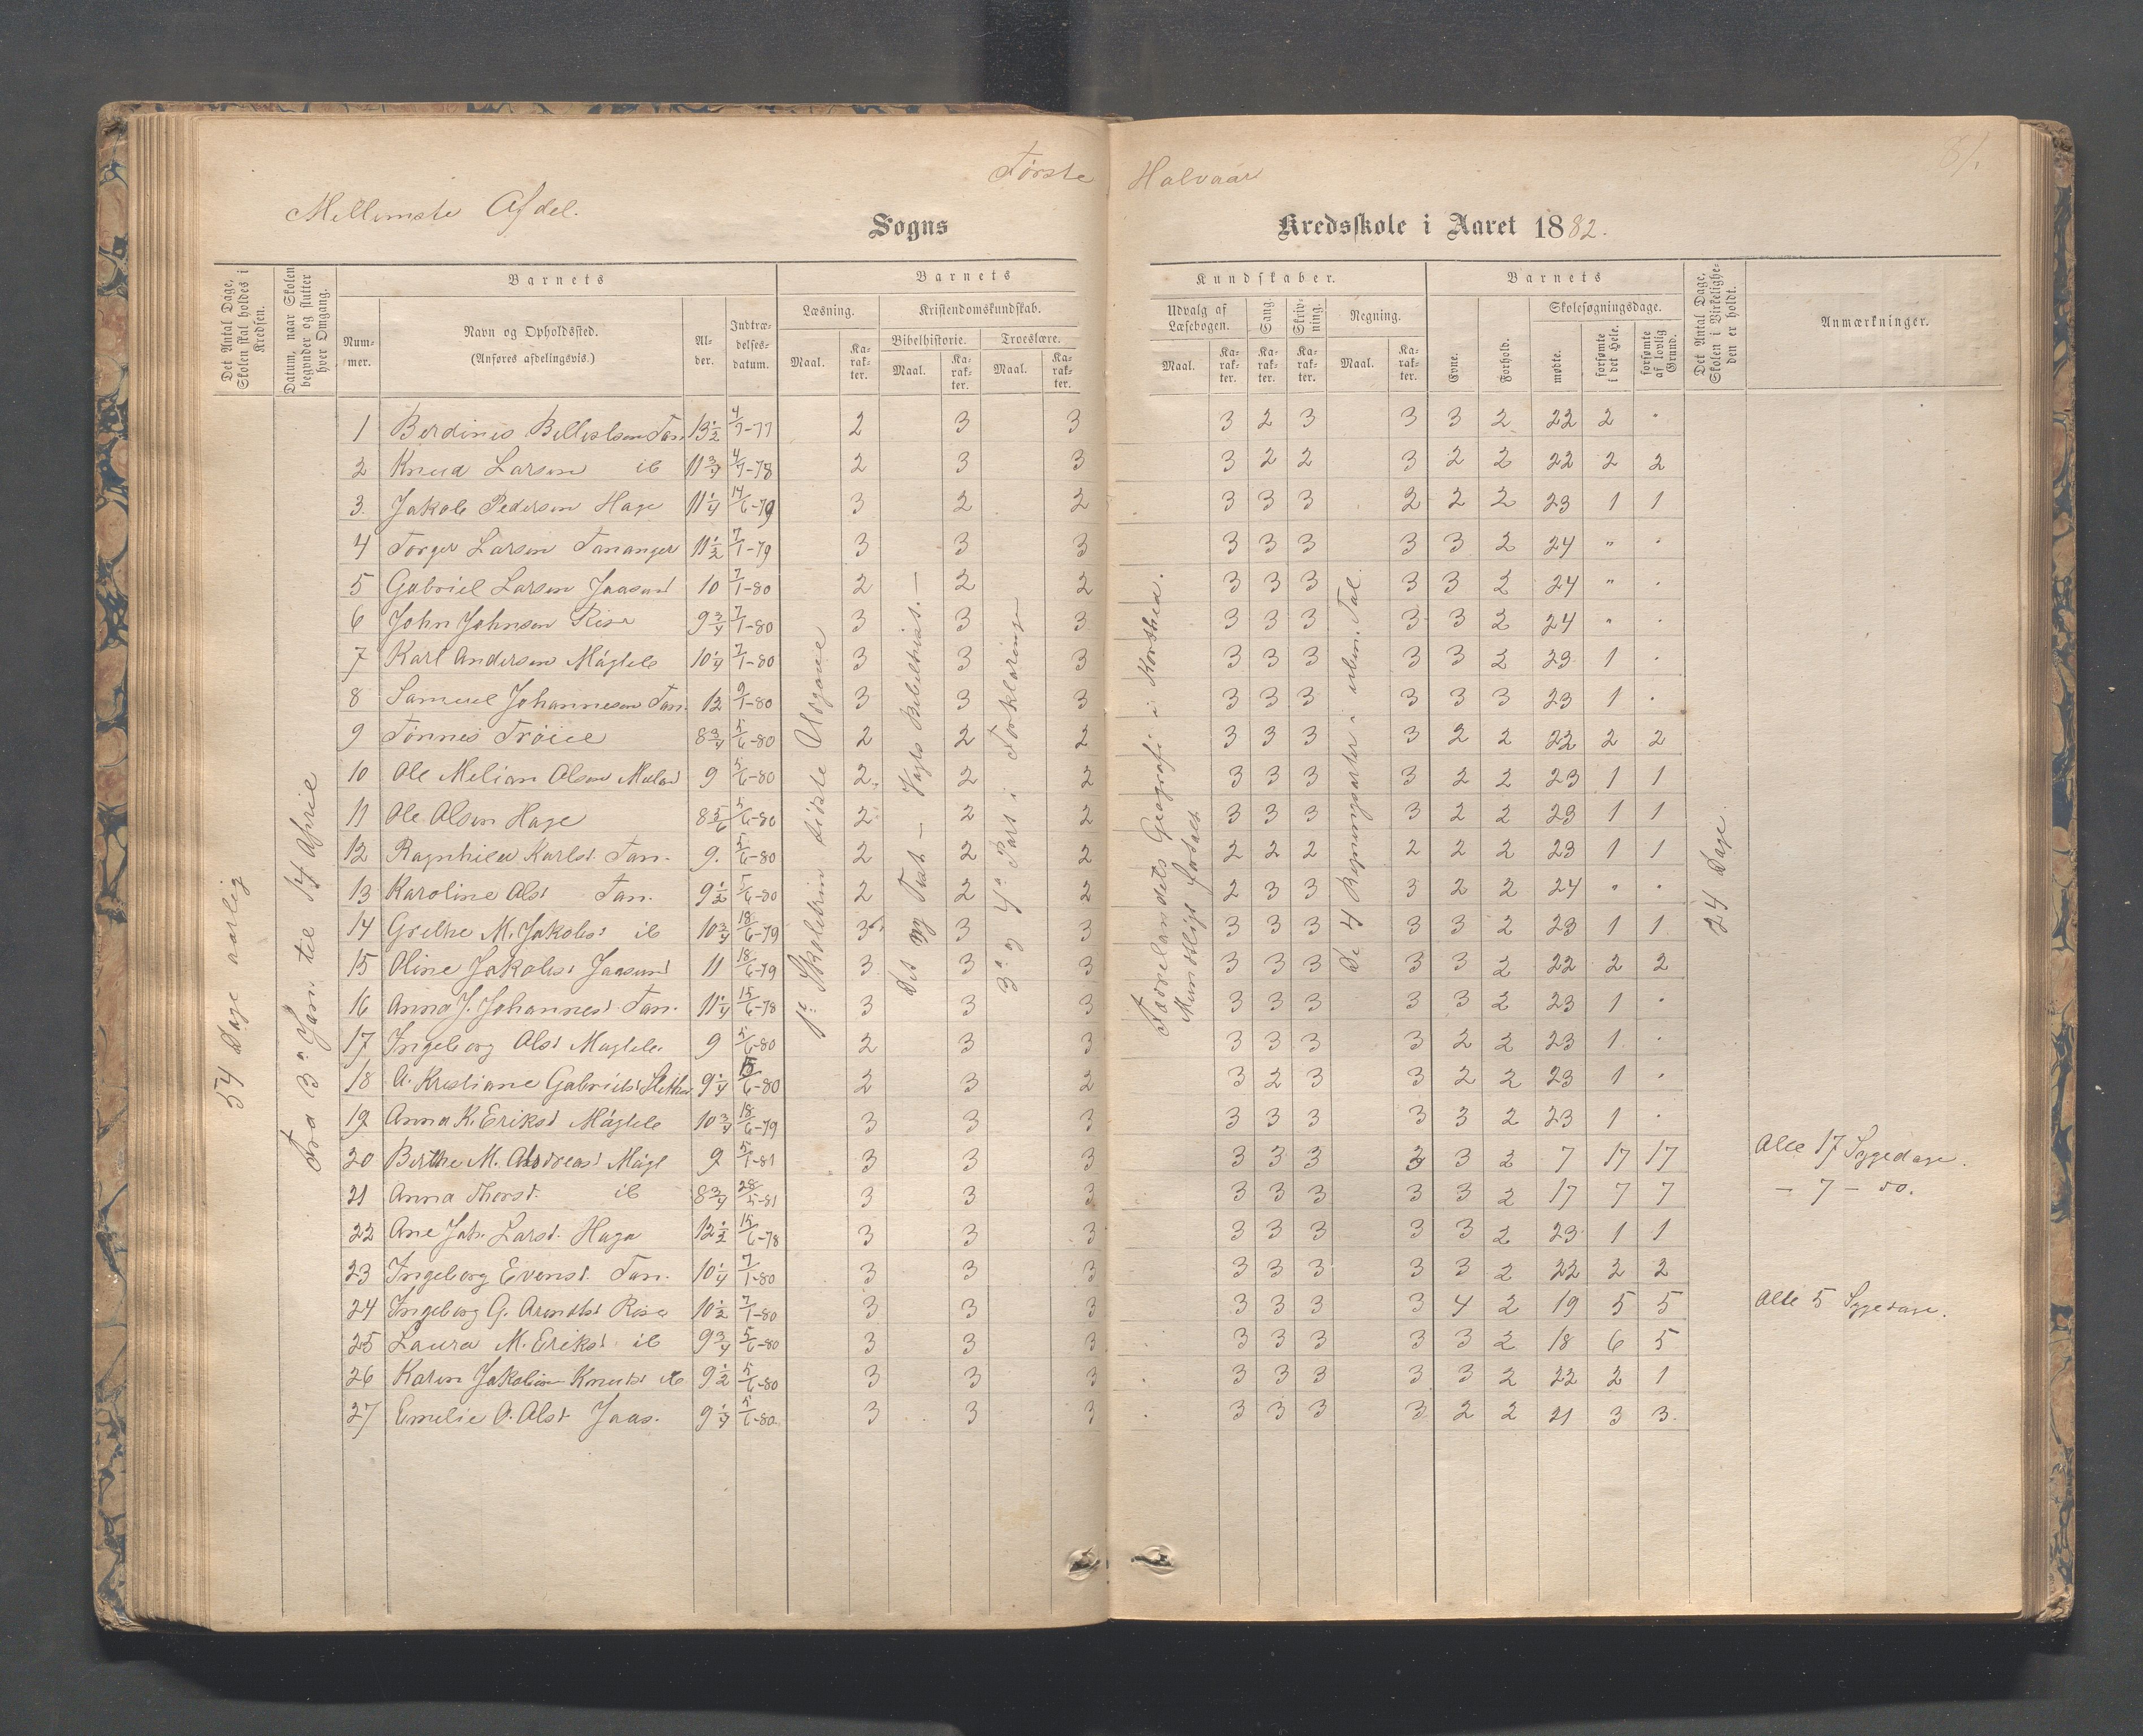 Første Halvaar
81
Mellemste Afdel.
Sogns
Kredsskole i Aaret 1882.
Det Antal Dage, Skolen skal holdes i Kredsen.
Datum, naar Skolen begynder og slutter hver Omgang.
Barnets
Barnets
Kundskaber.
Barnets
Det Antal Dage, Skolen i Virkeligheden er holdt.
Anmærkninger.
Nummer.
Navn og Opholdssted.
(Anføres afdelingsvis.)
Alder.
Indtrædelsesdatum.
Læsning.
Kristendomskundskab.
Bibelhistorie.
Troeslære.
Maal.
Karakter.
Maal.
Karakter.
Maal.
Karakter.
Udvalg af Læsebogen.
Sang.
Skrivning.
Regning.
Maal.
Karakter.
Karakter.
Karakter.
Maal.
Karakter.
Evne.
Forhold.
Skolesøgningsdage.
mødte.
forsømte i det Hele.
forsømte af lovlig Grund.
54 Dage aarlig
Fra 3 Jan. til 14 April
1ste Skoletrin sidste Udgave
Det ny Test. – Vogts Bibelhist. –
3die og 4de Part i Forklaringen
Fædrelandets Geografi i Korthed.
Mundtligt fortalt
De 4 Regningsarter i uben. Tal.
24 Dage.
1 Berdinis Tan 13 1/2 4/7-77 2 3 3 3 2 3 3 3 2 22 2 .
2 Knud Larsen ib 11 3/4 4/7-78 2 3 3 3 2 2 3 2 2 22 2 2
3. Jakob Pedersen Hage 11 1/4 14/6-79 3 2 2 3 3 3 2 2 2 23 1 1
4 Torger Larsen Tananger 11 1/2 7/1-79 3 3 3 3 3 3 3 3 2 24 " .
5 Gabriel Larsen Jaasund 10 7/1-80 2 2 2 3 3 3 3 3 2 24 " .
6 John Johnsen Risa 9 3/4 7/1-80 3 3 3 3 3 3 3 3 2 24 " .
7 Karl Andersen Mágleb 10 1/4 7/1-80 3 3 3 3 3 3 3 3 2 23 1 .
8 Samuel Johannesen Tan. 12 9/1-80 3 3 3 3 3 3 3 3 3 23 1 .
9 Tønnes Trøie 8 3/4 5/6-80 2 2 2 3 3 3 3 2 2 22 2 2
10 Ole Melian Olsen 9 5/6-80 2 2 2 3 3 3 3 2 2 23 1 1
11 Ole Olsen Hage 8 5/6 5/6-80 2 2 2 3 3 3 3 2 2 23 1 1
12 Ragnhild Karlsd. Tan. 9. 5/6-80 2 2 2 2 2 2 2 2 2 23 1 1
13 Karoline Olsd Tan. 9 1/2 5/6-80 2 2 2 2 3 3 3 2 2 24 " "
14 Grethe M. Jakobsd ib 10 3/4 18/6-79 3 3 3 3 3 3 3 3 2 23 1 1
15 Oline Jakobsd Jaasund 11 18/6-79 3 3 3 3 3 3 3 3 2 22 2 2
16 Anna J. Johannesd. Tan. 11 1/4 15/6-78 3 3 3 3 3 3 3 3 2 23 1 .
17 Ingeborg Olsd Magleb. 9 5/6-80 2 3 3 3 3 3 3 2 2 23 1 .
18 A. Kristiane Gabrielsd 9 1/4 15/6-80 2 3 2 3 2 3 3 2 2 23 1 .
19 Anna K. Eriksd Mágleb 10 3/4 18/6-79 3 3 3 3 3 3 3 3 2 23 1 .
20 Berthe M. Andreasd Mágl 9 5/1-81 3 3 3 3 3 3 3 3 2 7 17 17 Alle 17 Sygedage.
21 Anna Thorsd. ib 8 3/4 28/5-81 3 3 3 3 3 3 3 3 2 17 7 7 – 7 – do.
22 Ane Joh. Larsd. Haga 12 1/2 15/6-78 3 3 3 3 3 3 3 3 2 23 1 1
23 Ingeborg Evensd. Tan. 10 1/4 7/1-80 3 3 3 3 3 3 3 3 2 22 2 2
24 Ingeborg G. Arndtsd Risa 10 1/2 7/1-80 3 3 3 3 3 3 3 4 2 19 5 5 Alle 5 Sygedage.
25 Laura M. Eriksd. ib 9 3/4 5/6-80 3 3 3 3 3 3 3 3 2 18 6 5
26 Karen Jakobine Knutsd ib 9 1/2 5/6-80 3 3 3 3 3 3 3 3 2 22 2 1
27 Emelie O. Olsd. Jaas. 9 1/4 5/6-80 3 3 3 3 3 3 3 2 2 21 3 3